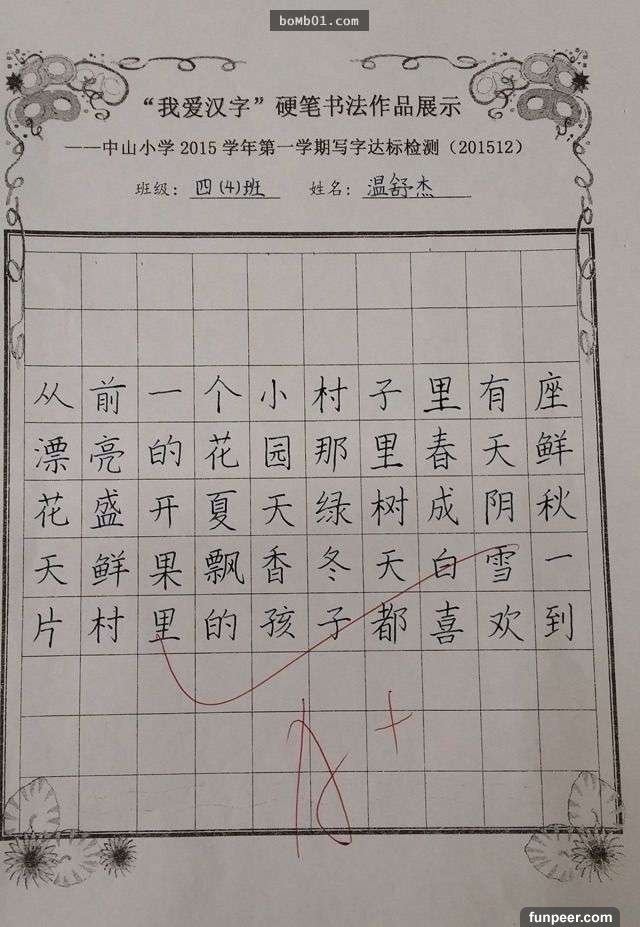 boMb01.com
“我爱汉字”硬笔书法作品展示
——中山小学 2015 学年第一学期写字达标检测（201512）
班级：四(4)班 姓名：温舒杰
从前一个小村子里有座
漂亮的花园那里春天鲜
花盛开夏天绿树成阴秋
天鲜果飘香冬天白雪一
片村里的孩子都喜欢到
funpeer.com